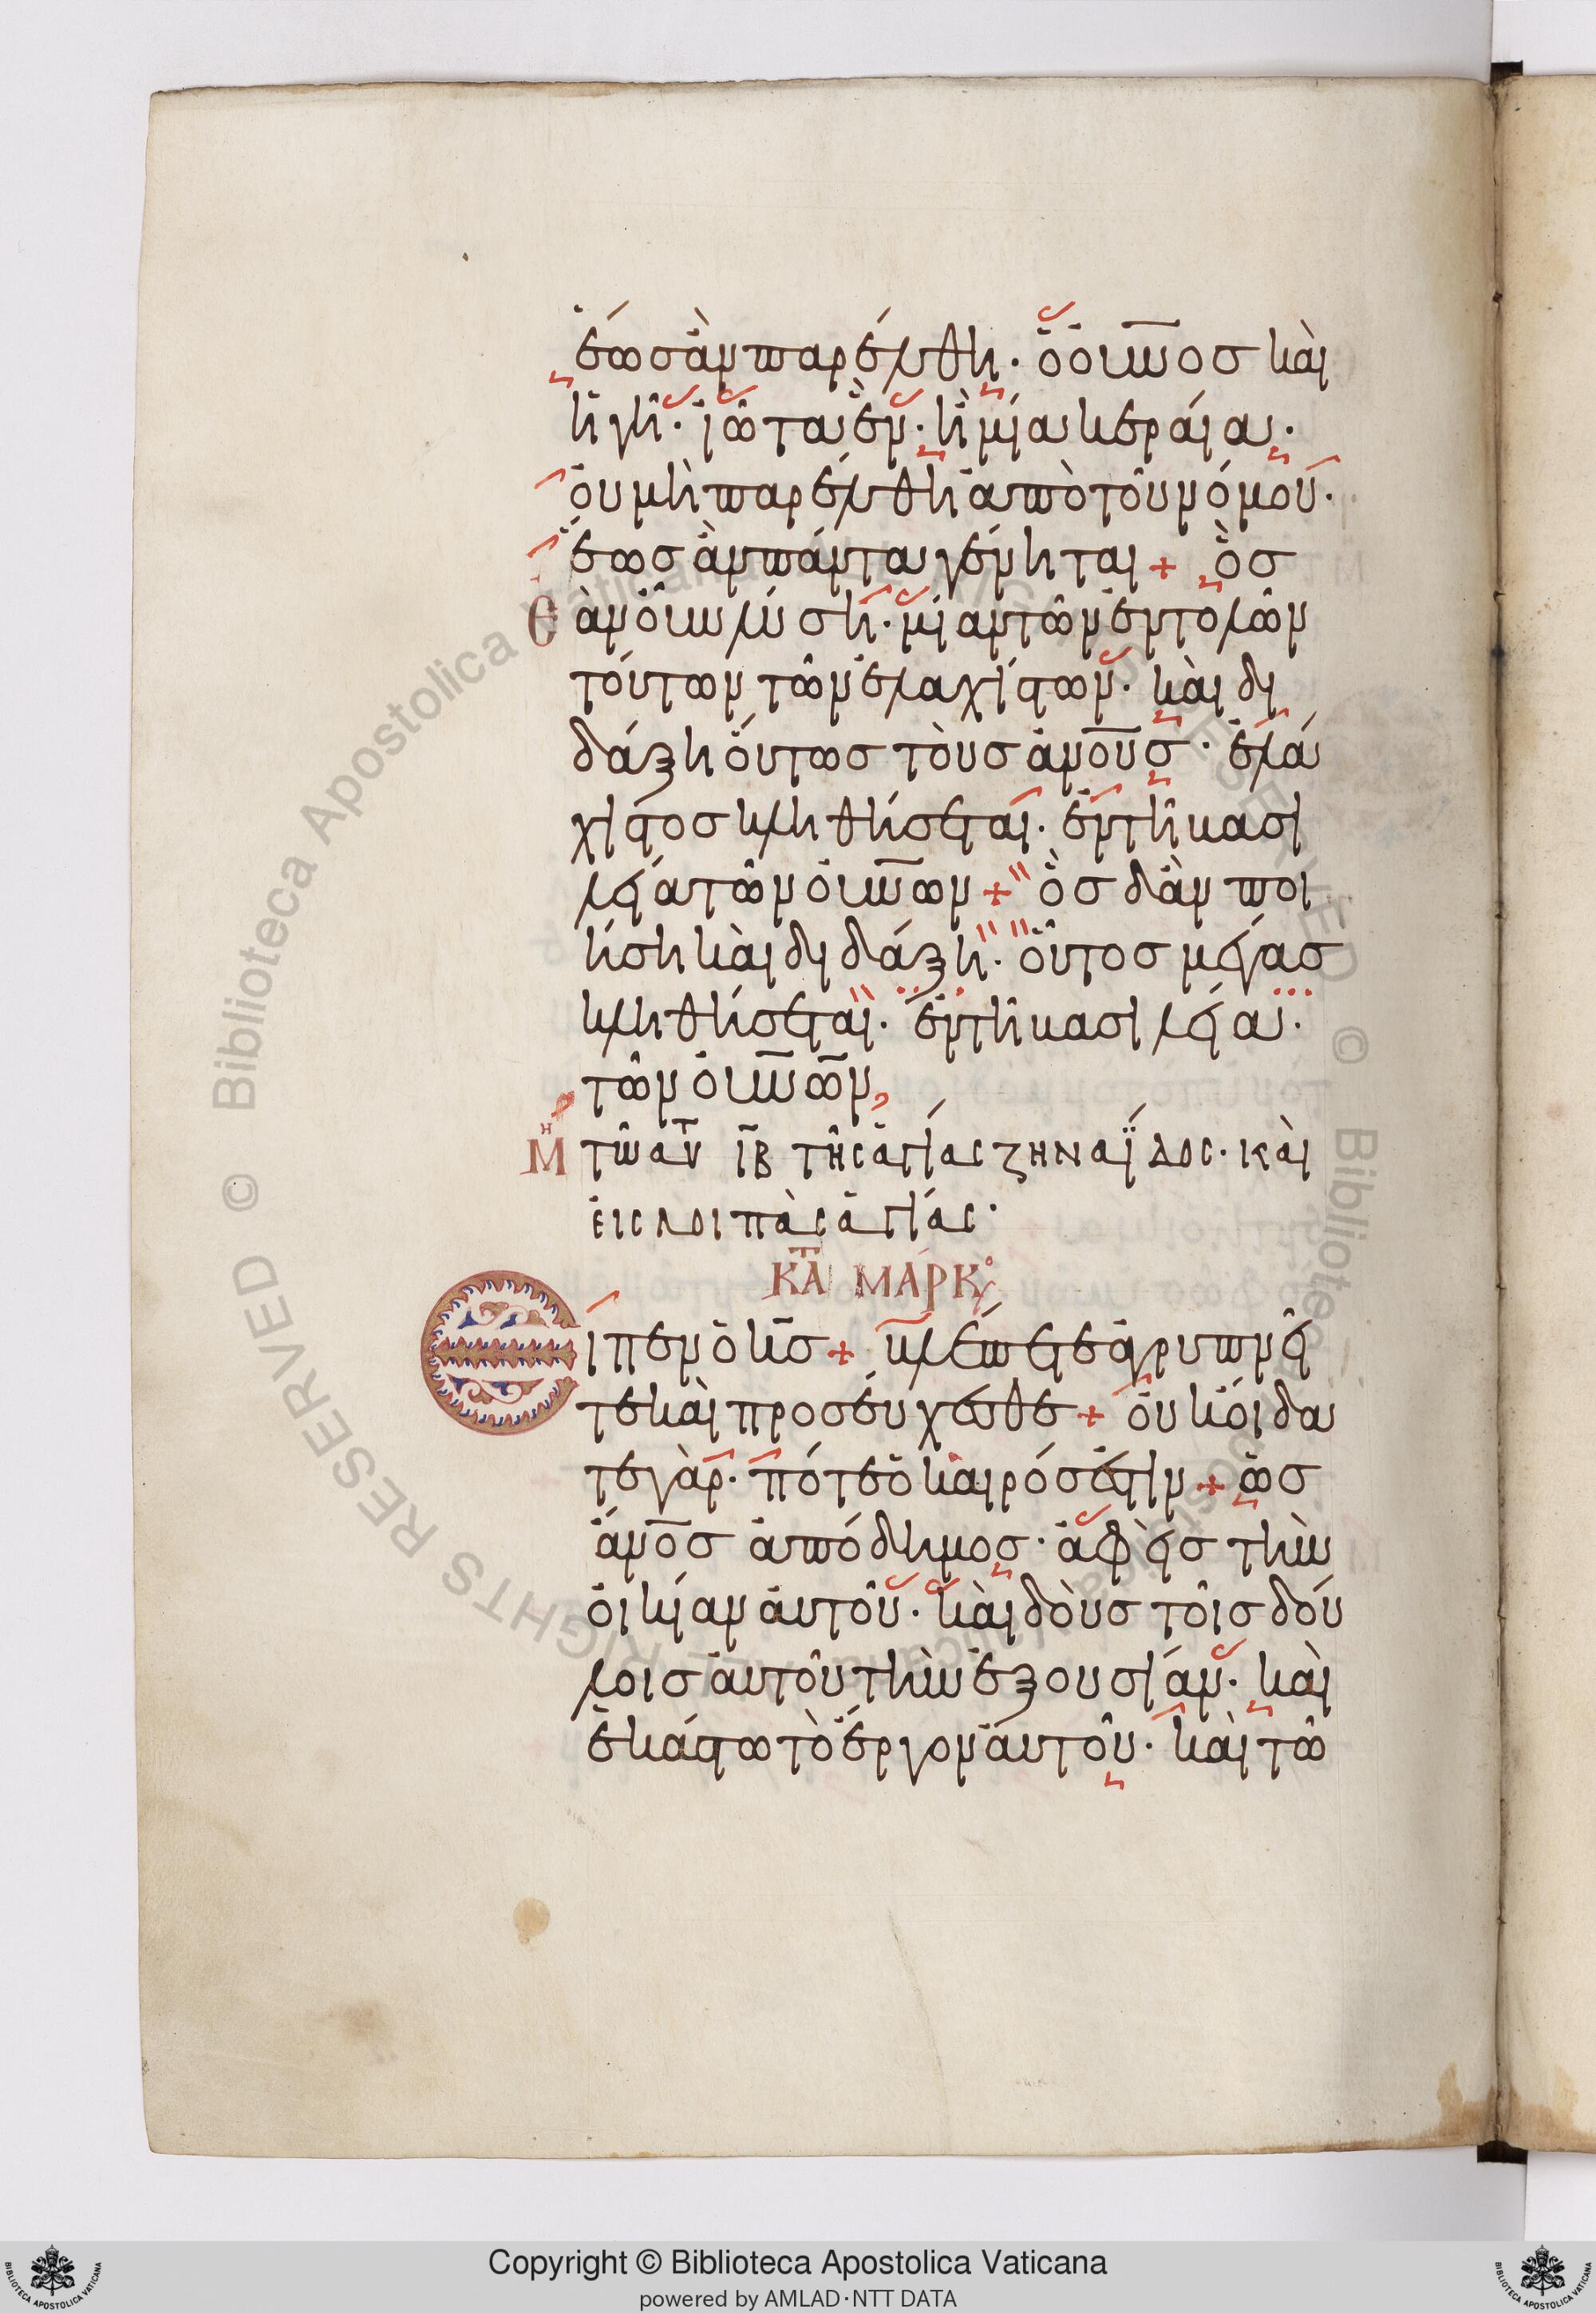 ἕως ἂν παρέλθη· ὁ ουνος καὶ
ἡ γῆ· ἰῶτα ἓν· ἢ μία κεραία·
οὐ μὴ παρέλθη ἀπὸ τοῦ νόμου·
ἕως ἂν πάντα γένηται + ὃς
ἐὰν οὖν λύση· μίαν τῶν ἐντολῶν
τούτων τῶν ἐλαχίστων· καὶ δι
δάξη οὕτως τοὺς ἀνους· ἐλά
χιστος κληθήσεται· ἐν τῆ βασι
λεία τῶν οὐνων + ὃς δ' ἂν ποι
ήση καὶ διδάξη· οὗτος μέγας
κληθήσεται· ἐν τῆ βασιλεία·
τῶν οὐνῶν,
Μη τῶ αυτ ιβ τῆς ἁγίας ζηναΐδος· καὶ
εἰς λοιπὰς ἁγίας·
κατ μάρκο
Εἶπεν ὁ κς + βλέπετε ἀγρυπνεῖ
τε καὶ προσεύχεσθε + οὐκ οἴδα
τε γὰρ· πότε ὁ καιρός ἐστιν + ὡς
ἄνος ἀπόδημος· ἀφεὶς τὴν
οἰκίαν αὐτοῦ· καὶ δοὺς τοῖς δού
λοις αὐτοῦ τὴν ἐξουσίαν· καὶ
ἑκάστω τὸ ἔργον αὐτοῦ· καὶ τῶ
Copyright © Biblioteca Apostolica Vaticana
powered by AMLAD·NTT DATA